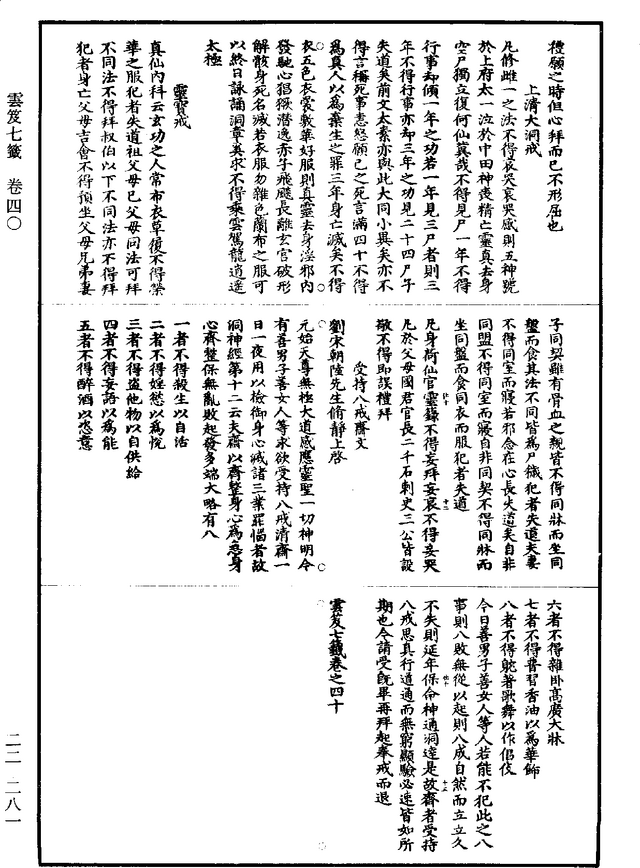 禮願之時但心拜而已不形屈也
上清大洞戒
凡修雌一之法不得哀哭哀哭感則五神號
於上府太一泣於中田神喪精亡靈真去身
空尸獨立復何仙冀哉不得見尸一年不得
行事却傾一年之功若一年見三尸者則三
年不得行事亦却三年之功見二十四尸子
失道矣前文太素亦與此大同小異矣亦不
得言稱死事恚怒願己之死言滿四十不得
為真人以為棄生之罪三年身亡滅矣不得
衣五色衣裳數華好服則真靈去身淫邪內
發馳心猖猴潛逸赤子飛颺長離玄宮破形
解骸身死名滅若衣服勿雜色蘭布之服可
以終日詠誦洞章英求不得乘雲駕龍逍遙
太極
靈寶戒
真仙內科云玄功之人常布衣草履不得榮
華之服犯者失道祖父母已父母同法可拜
不同法不得拜叔伯以下不同法亦不得拜
犯者身亡父母吉會不得預坐父母兄弟妻
子同契雖有骨血之親皆不得同牀而坐同
盤而食其法不同皆為尸穢犯者失道夫妻
不得同室而寢若邪念在心長失道矣自非
同盟不得同室而寢自非同契不得同牀而
坐同盤而食同衣而服犯者失道
凡身荷仙官靈籙不得妄拜妄哀不得妄哭
凡於父母國君官長二千石刺史三公皆設
敬不得即誤禮拜
受持八戒齋文
劉宋朝陸先生脩靜上啓
元始天尊無極大道感應靈聖一切神明今
有善男子善女人等求欲受持八戒清齋一
日一夜用以檢御身心滅諸三業罪惱者故
洞神經第十二云夫齋以齊整身心為急身
心齊整保無亂敗起發多端大略有八
一者不得殺生以自活
二者不得婬慾以為悅
三者不得盜他物以自供給
四者不得妄語以為能
五者不得醉酒以恣意
六者不得雜卧高廣大牀
七者不得普習香油以為華飾
八者不得躭著歌舞以作倡伎
今日善男子善女人等人若能不犯此之八
事則八敗無從以起則八成自然而立立久
不失則延年保命神通洞達是故齋者受持
八戒思真行道通而無窮顯驗必速皆如所
期也今請受既畢再拜起奉戒而退
雲笈七籤卷之四十
雲笈七籤　卷四〇
二二—二八一